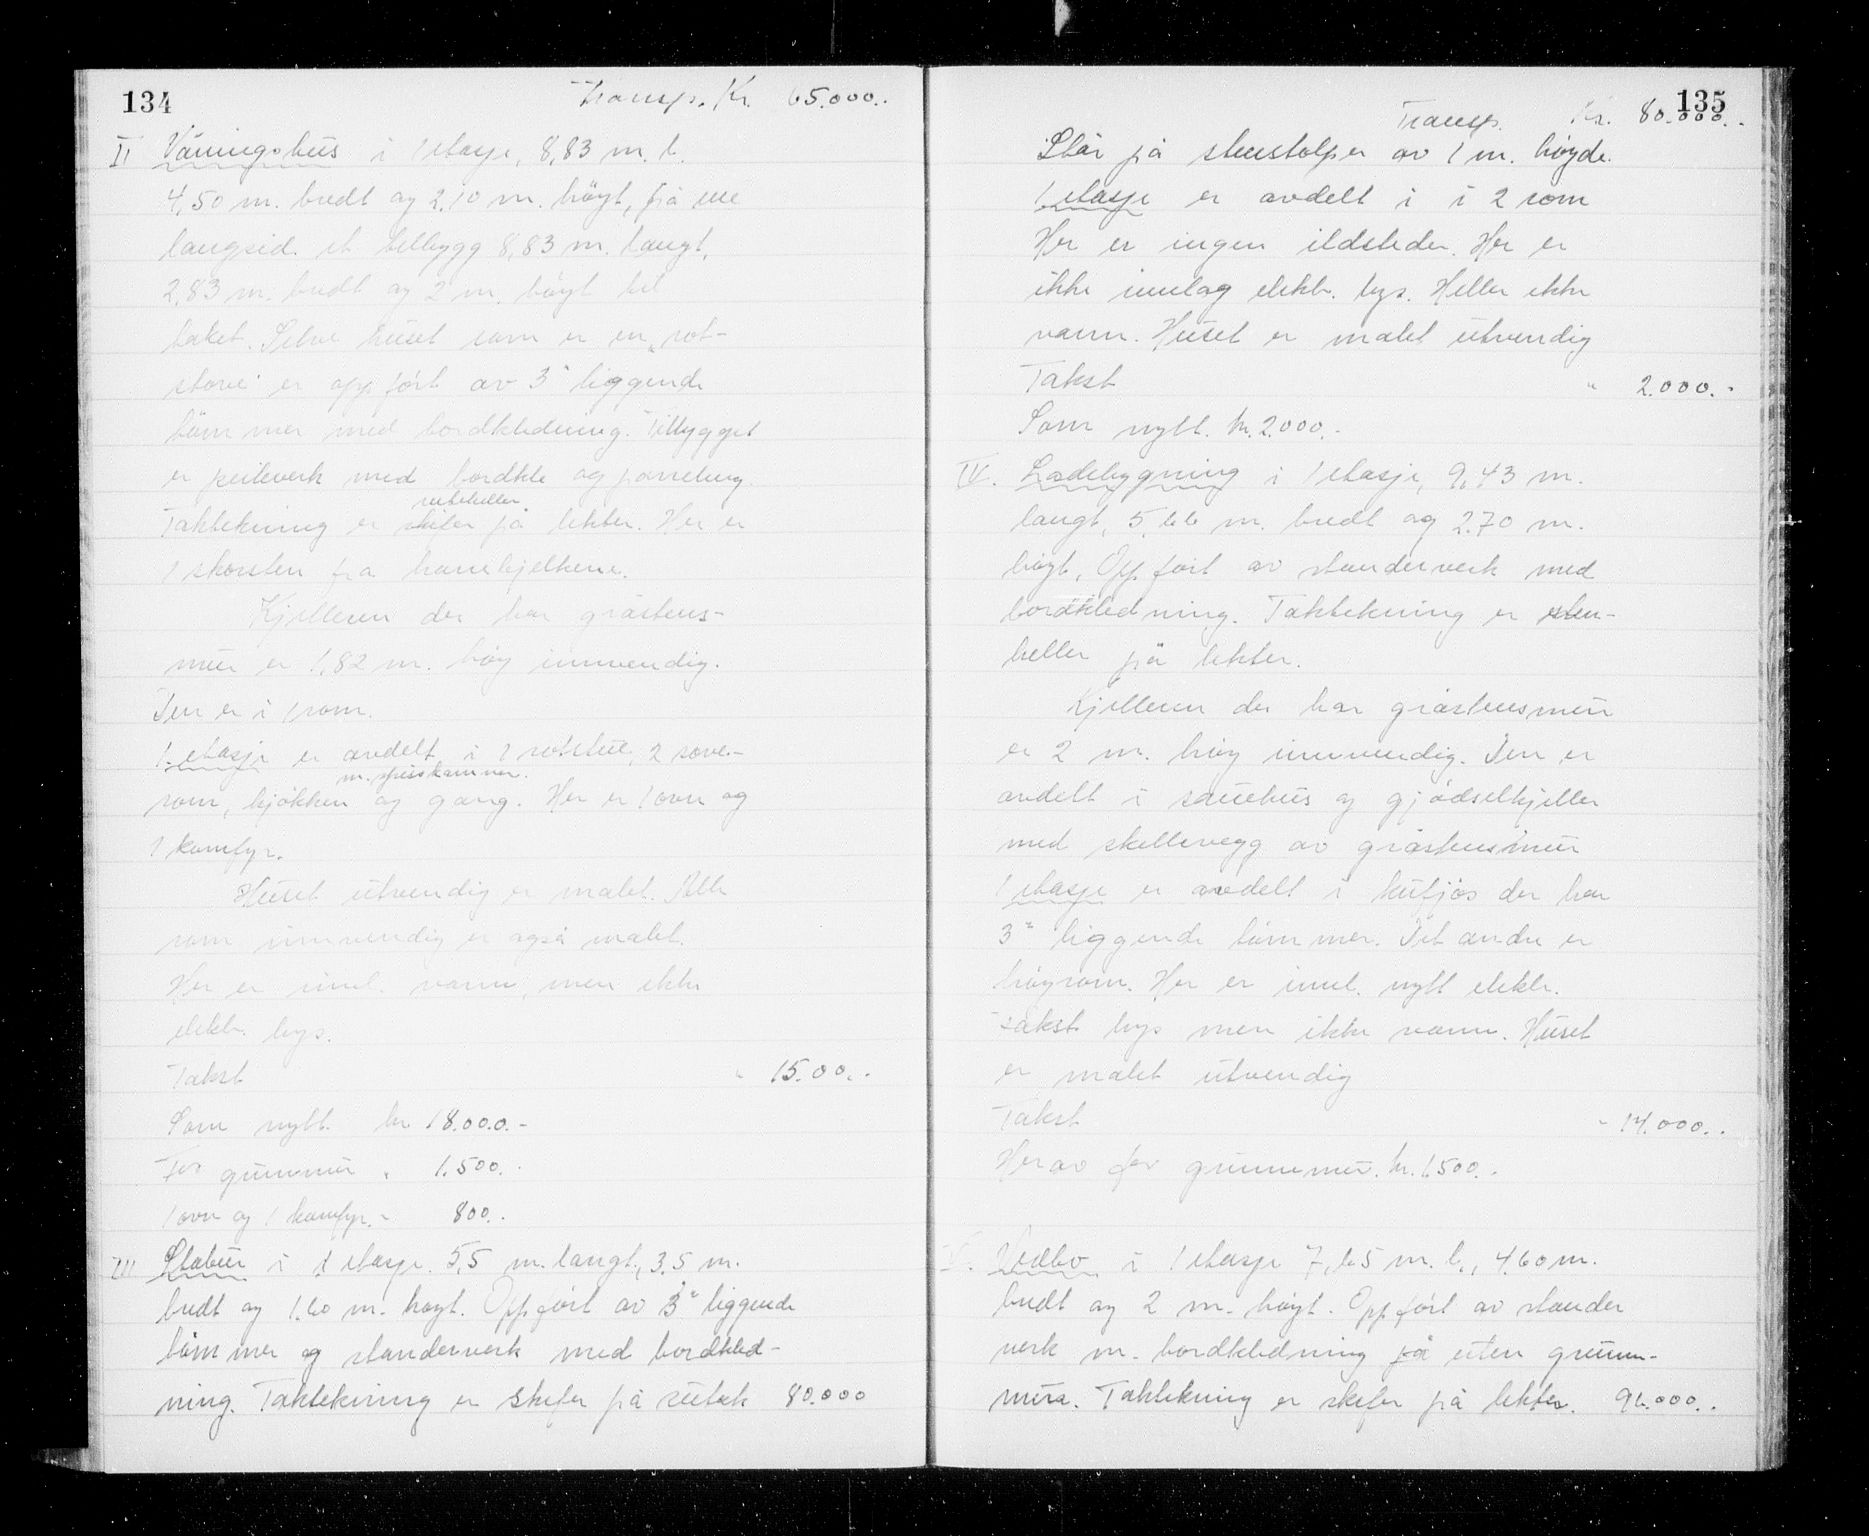 134
Transp. Kr. 65.000.-
II Våningshus i 1 etasje, 8,83 m. l.
4,50 m. bredt og 2,10 m. høyt, på ene
langsid. et tilbygg 8,83 m. langt,
2,83 m. bredt og 2 m. høyt til
taket. Selve huset som er en "rot-
stove" er oppført av 3" liggende
tømmer med bordkledning. Tilbygget
er peileverk med bordkle og panelung.
ruteheller
Taktekning er skifer på lekter. Her er
1 skorsten fra hanebjelkene.
Kjelleren der har gråstens-
mur er 1,82 m. høy innvendig.
Den er i 1 rom.
1. etasje er avdelt i 1 rotstue, 2 sove-
m. spisskammer.
rom, kjøkken og gang. Her er 1 ovn og
1 komfyr.
Huset utvendig er malet. Alle
rom innvendig er også malet.
Her er innl. vann, men ikke
elektr. lys.
Takst " 15.00.-
Som nytt kr 18.000.-
For grunnmur " 1.500.-
1 ovn og 1 komfyr. " 800.-
III Stabur i 1 etasje. 5,5 m. langt, 3,5 m.
bredt og 1.60 m. høyt. Oppført av 3" liggende
tømmer og standerverk med bordkled-
ning. Taktekning er skifer på sutak 80.000
135
Transp. Kr. 80.000.-
Står på stenstolper av 1 m. høyde.
1 etasje er avdelt i i 2 rom
Her er ingen ildsteder. Her er
ikke innlag elektr. lys. Heller ikke
vann. Huset er malet utvendig
Takst " 2.000.-
Som nytt. kr. 2.000.-
IV. Ladebygning i 1 etasje, 9,43 m.
langt, 5,66 m. bredt og 2.70 m.
høyt, Oppført av standerverk med
bordkledning. Taktekning er sten-
heller på lekter.
Kjelleren der har gråstensmur
er 2 m. høy innvendig. Den er
avdelt i sauehus og gjødselkjeller
med skillevegg av gråstensmur
1 etasje er avdelt i kufjøs der har
3" liggende tømmer. Det andre er
høyrom. Her er innl. nytt elektr.
Takst lys men ikke vann. Huset
er malet utvendig
Takst " 14.000.-
Herav for grunnmur. kr. 1.500.-
V. Vedbo i 1 etasje 7,65 m. l., 4.60 m.
bredt og 2 m. høyt. Oppført av stander
verk m. bordkledning på uten grunn-
mura. Taktekning er skifer på lekter. 96.000.-